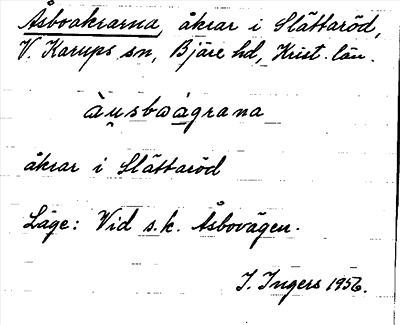 Åsboakrarna, åkrar i Slättaröd,
V. Karups sn, Bjäre hd, Krist. län.
àu̯sbωȧgrana
åkrar i Slättaröd
Läge: Vid s.k. Åsbovägen.
I. Ingers 1956.